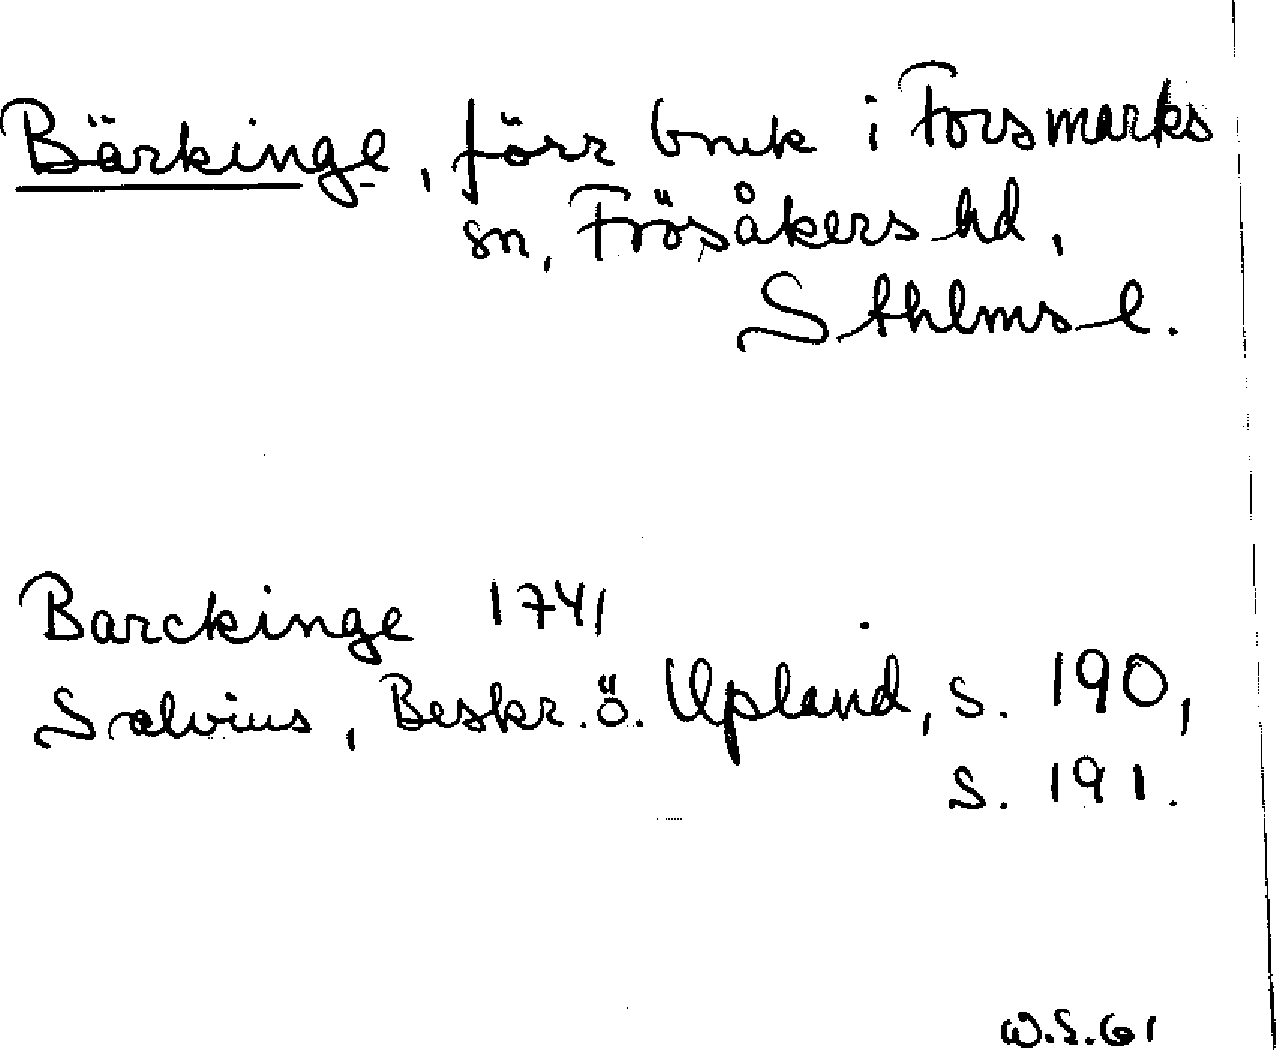 Bärkinge, förr bruk i Forsmarks
sn, Frösåkers hd,
Sthlms l.
Barckinge 1741
Salvius, Beskr. ö. Upland, s. 190,
s. 191.
W.S.61